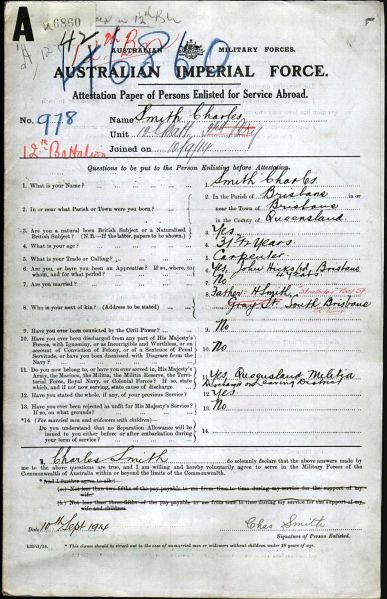 A
6860
12th Bn
46860
AUSTRALIAN MILITARY FORCES.
AUSTRALIAN IMPERIAL FORCE.
Attestation Paper of Persons Enlisted for Service Abroad.
No. 978
Name Smith Charles
Unit
12th Battalion
Joined on 10/9/14
Questions to be put to the Person Enlisting before Attestation.
1. What is your Name?
1. Smith Charles
2. In or near what Parish or Town were you born?
2. In the Parish of Brisbane
near the Town of Brisbane
in the County of Queensland
3. Are you a natural born British Subject or a Naturalised
British Subject? (N.B.—If the latter, papers to be shown.)
3. Yes
4. What is your age?
4. 31 Years
5. What is your Trade or Calling?
5. Carpenter
6. Are you, or have you been an Apprentice? If so, where, to
whom, and for what period?
6. Yes John Brisbane
7. Are you married?
7. No
8. Who is your next of kin? (Address to be stated)
8. Father H Smith
St. South Brisbane
9. Have you ever been convicted by the Civil Power?
9. No
10. Have you ever been discharged from any part of His Majesty's
Forces, with Ignominy, or as Incorrigible and Worthless, or on
account of Conviction of Felony, or of a Sentence of Penal
Servitude, or have you been dismissed with Disgrace from the
Navy?
10. No
11. Do you now belong to, or have you ever served in, His Majesty's
Army, the Marines, the Militia, the Militia Reserve, the Terri-
torial Force, Royal Navy, or Colonial Forces? If so, state
which, and if not now serving, state cause of discharge
11. Yes Queensland Militia
Discharge on Leaving District
12. Have you stated the whole, if any, of your previous Service?
12. Yes
13. Have you ever been rejected as unfit for His Majesty's Service?
If so, on what grounds?
13. No
*14. (For married men and widowers with children)
Do you understand that no Separation Allowance will be
issued to you either before or after embarkation during
your term of service?
14.
I, Charles Smith do solemnly declare that the above answers made
by me to the above questions are true, and I am willing and hereby voluntarily agree to serve in the Military Forces of the
Commonwealth of Australia within or beyond the limits of the Commonwealth.
*And I further agree to allot
(a) Not less than two-fifths of the pay payable to me from time to time during my service for the support of my
wife.
(b) Not less than three-fifths of the pay payable to me from time to time during my service for the support of my
wife and children.
Date 10th Sept 1914
Chas Smith
Signature of Person Enlisted.
* This clause should be struck out in the case of unmarried men or widowers without children under 18 years of age.